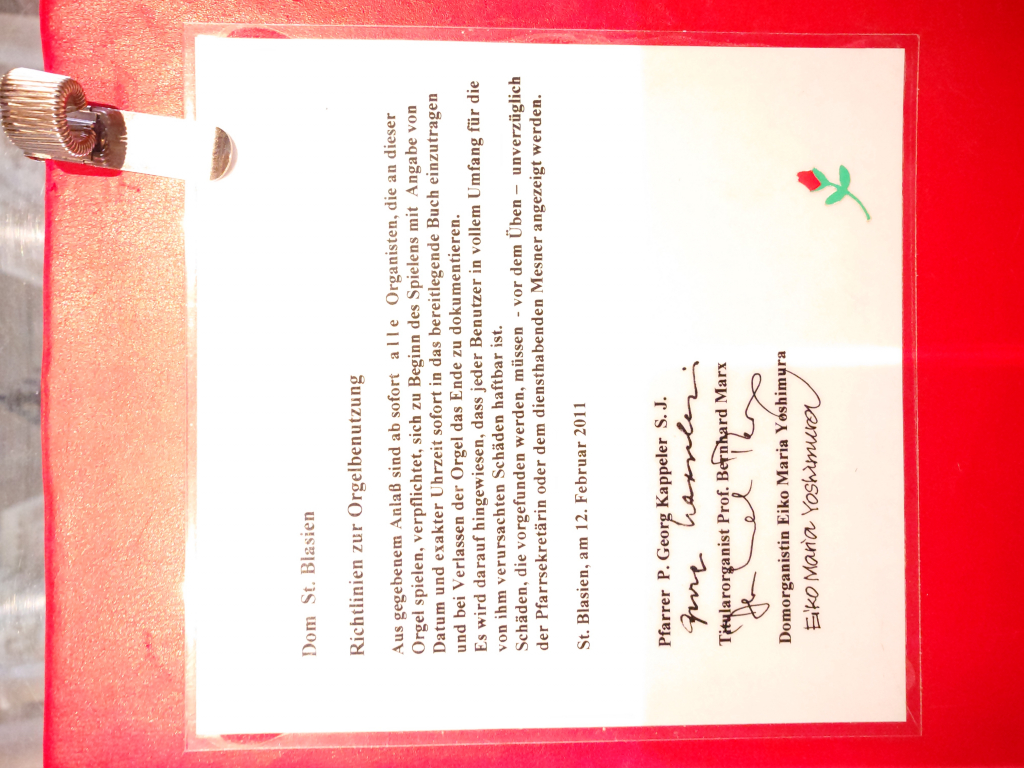 Dom St. Blasien
Richtlinien zur Orgelbenutzung
Aus gegebenem Anlaß sind ab sofort a l l e Organisten, die an dieser
Orgel spielen, verpflichtet, sich zu Beginn des Spielens mit Angabe von
Datum und exakter Uhrzeit sofort in das bereitlegende Buch einzutragen
und bei Verlassen der Orgel das Ende zu dokumentieren.
Es wird darauf hingewiesen, dass jeder Benutzer in vollem Umfang für die
von ihm verursachten Schäden haftbar ist.
Schäden, die vorgefunden werden, müssen - vor dem Üben – unverzüglich
der Pfarrsekretärin oder dem diensthabenden Mesner angezeigt werden.
St. Blasien, am 12. Februar 2011
Pfarrer P. Georg Kappeler S. J.
Titularorganist Prof. Bernhard Marx
Domorganistin Eiko Maria Yoshimura
EIKO MARIA YOSHIMURA